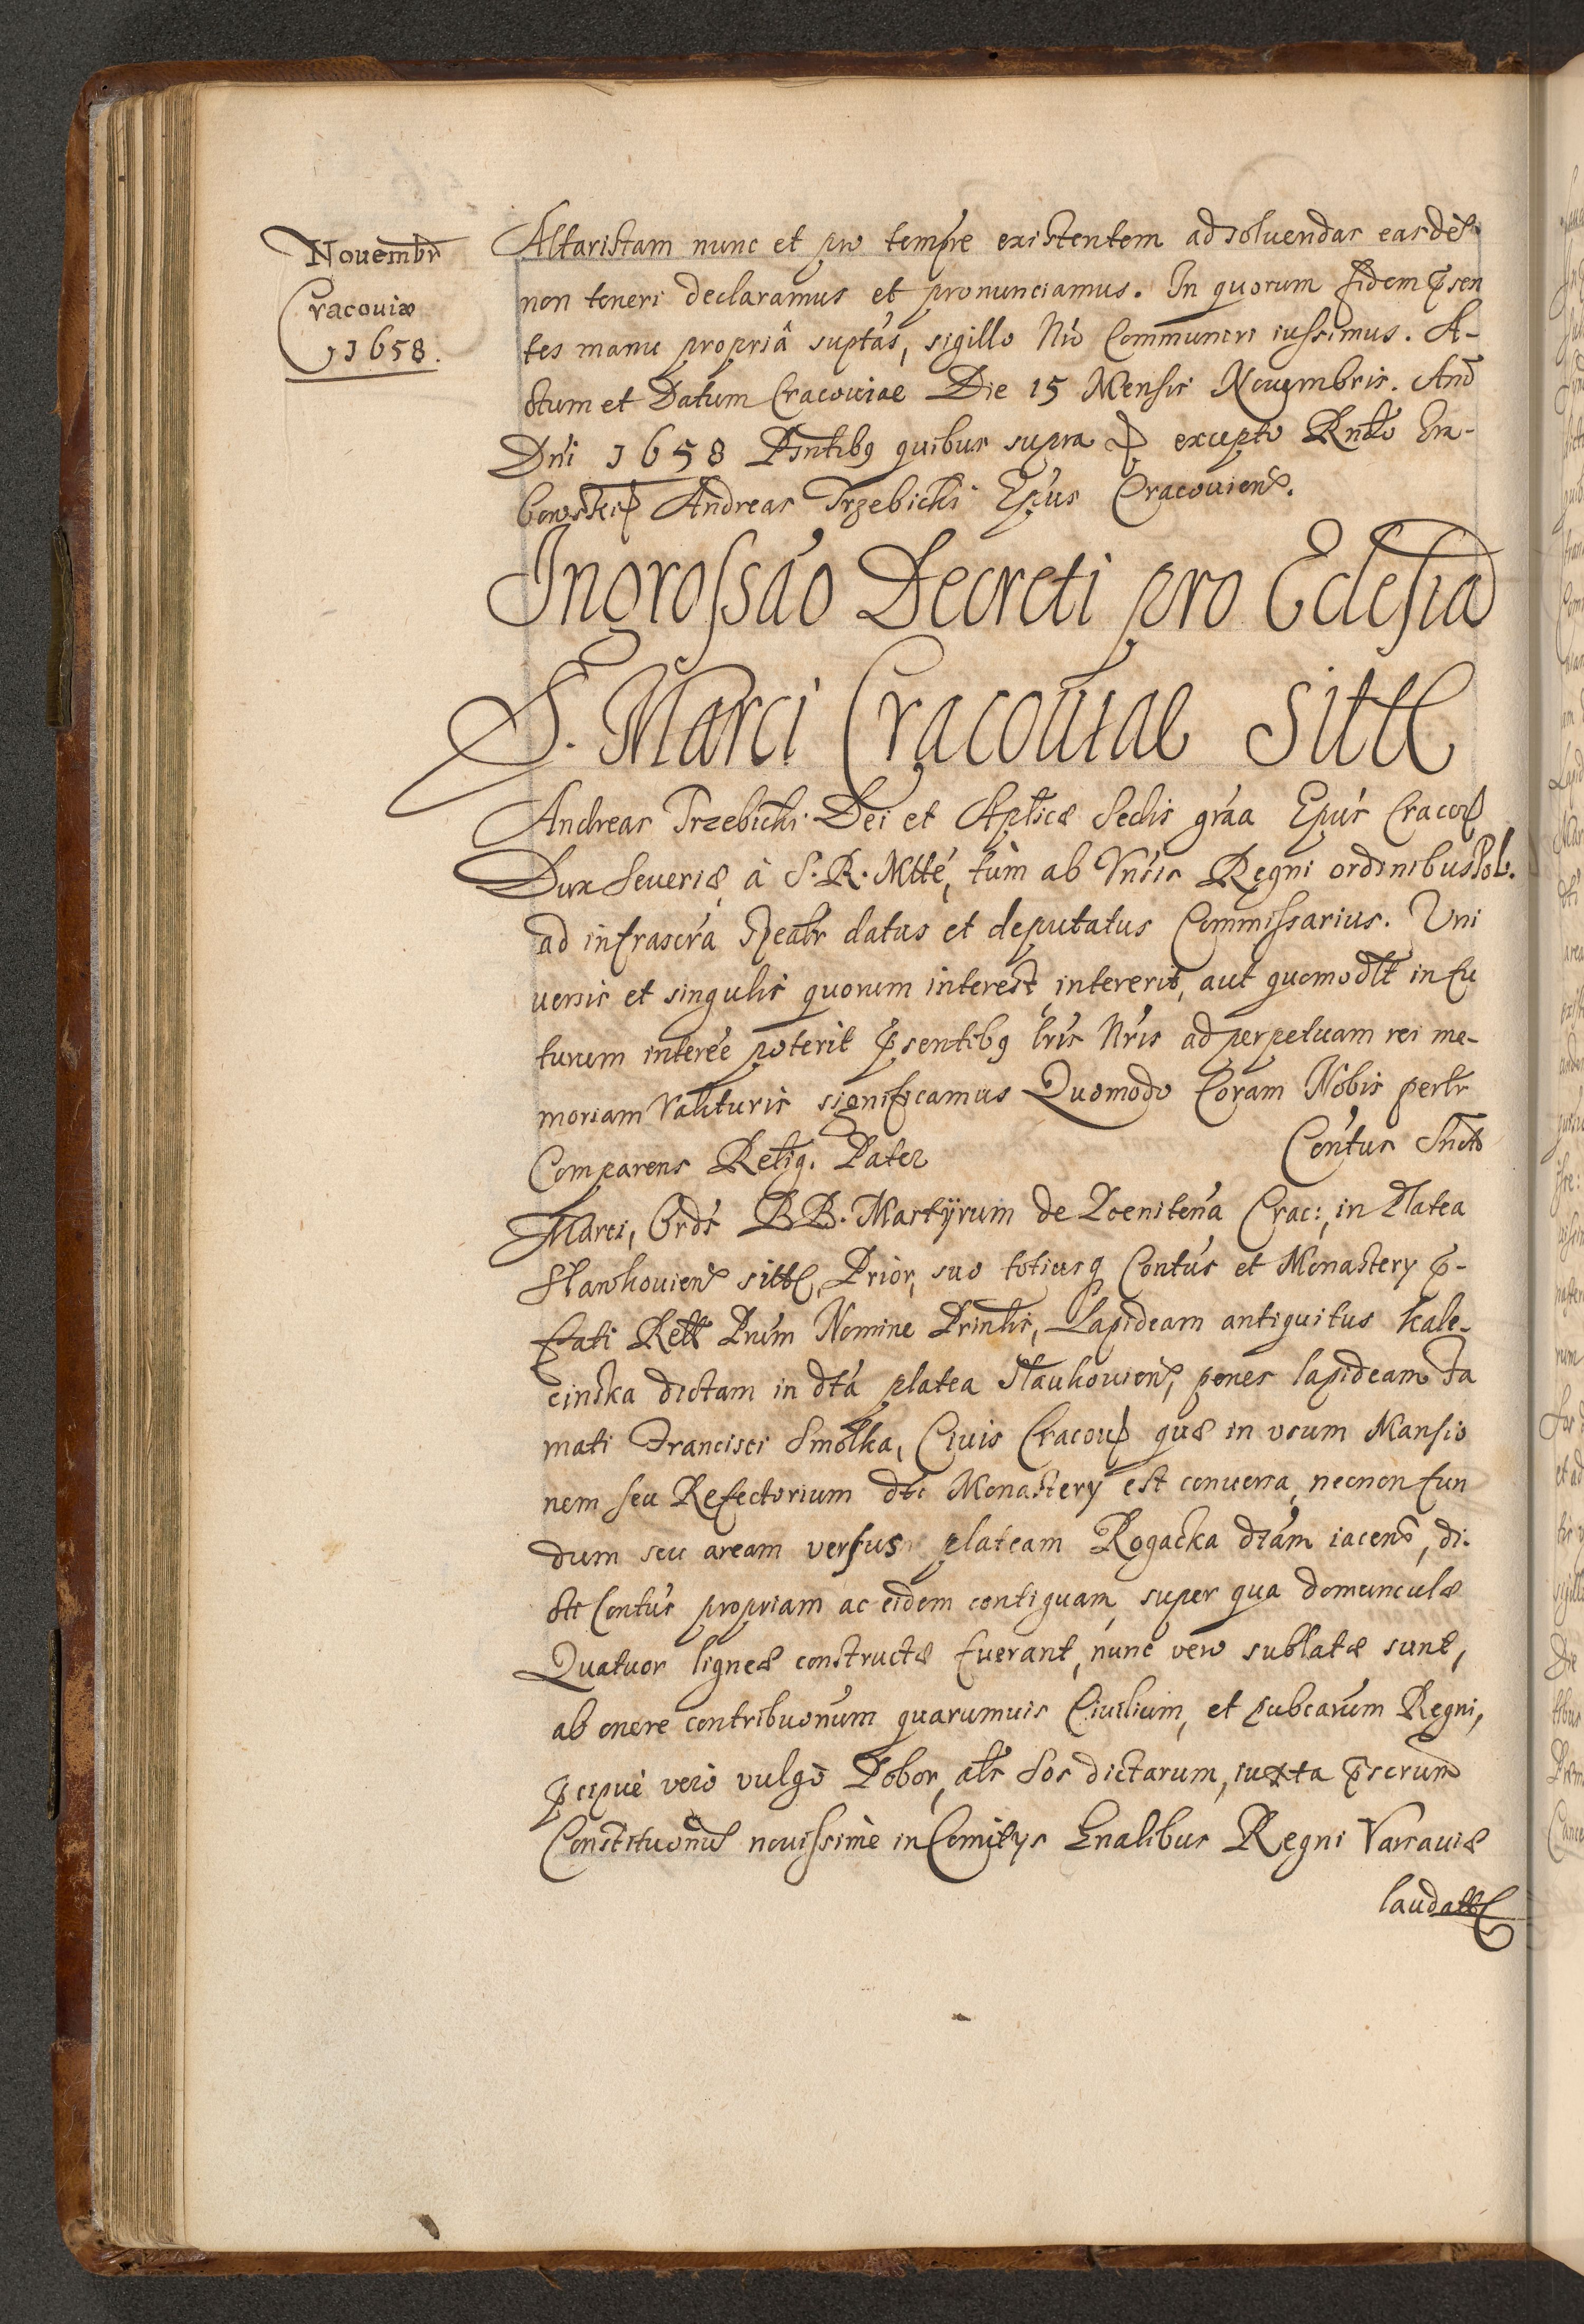 Nouembr
Cracouiæ
1658.
Altaristam nunc et pro tempre existentem ad soluendas easdẽ
non teneri declaramus et pronunciamus. In quorum fidem p̃sen
tes manu propriâ suptás, sigillo Nrõ Communiri iussimus. A-
ctum et Datum Cracouiae Die 15 Mensis Nouembris. Anõ
Dni 1658 Pntibq quibus supra excepto Rndo Gra-
bowski Andreas Trzebicki Epus Cracouiens.
Ingrossáo Decreti pro Eclesia
S. Marci Cracouiae sitae
Andreas Trzebicki Dei et Aplicæ Sedis gráa Epús Cracou
Dux Seueriæ, à S. R. Mtté, tùm ab Vnśis Regni ordinibus Pol.
ad infrascrá spealr datus et deputatus Commissarius. Uni
uersis et singulis quorum interest, intererit, aut quomodlt in fu
turum interée poterit p̃sentibq lrís Nrís ad perpetuam rei me-
moriam valituris significamus Quomodo Coram Nobis perlr
Comparens Relig. Pater Centus Sncti
Marci, Ords BB. Martÿrum de Poeniteńa Crac:, in Platea
Slawkouiens sitt, Prior, suo totiusq Contús et Monastery p̃-
fati Rell Prum Nomine Prinlis, Lapideam antiquitus kale-
cinska dictam in dtá platea Slaukouiens, penes lapideam Fa
mati Francisci Smolka, Ciuis Cracou quæ in usum Mansio
nem seu Refectorium dti Monastery est conuersa, necnon fun
dum seu aream versus plateam Rogacka dtám iacens, di-
cti Contús propriam ac eidem contiguam, super qua domunculæ
Quatuor ligneæ constructæ fuerant, nunc vero sublatæ sunt,
ab onere contribuonúm quarumuis Ciuilium, et publcarum Regni,
p̃cipuè verò vulgò Pobor, als Sos dictarum, iuxta p̃scrum
Constituonis nouissimè in Comitijs Gnalibus Regni Varsauiæ
laudatt